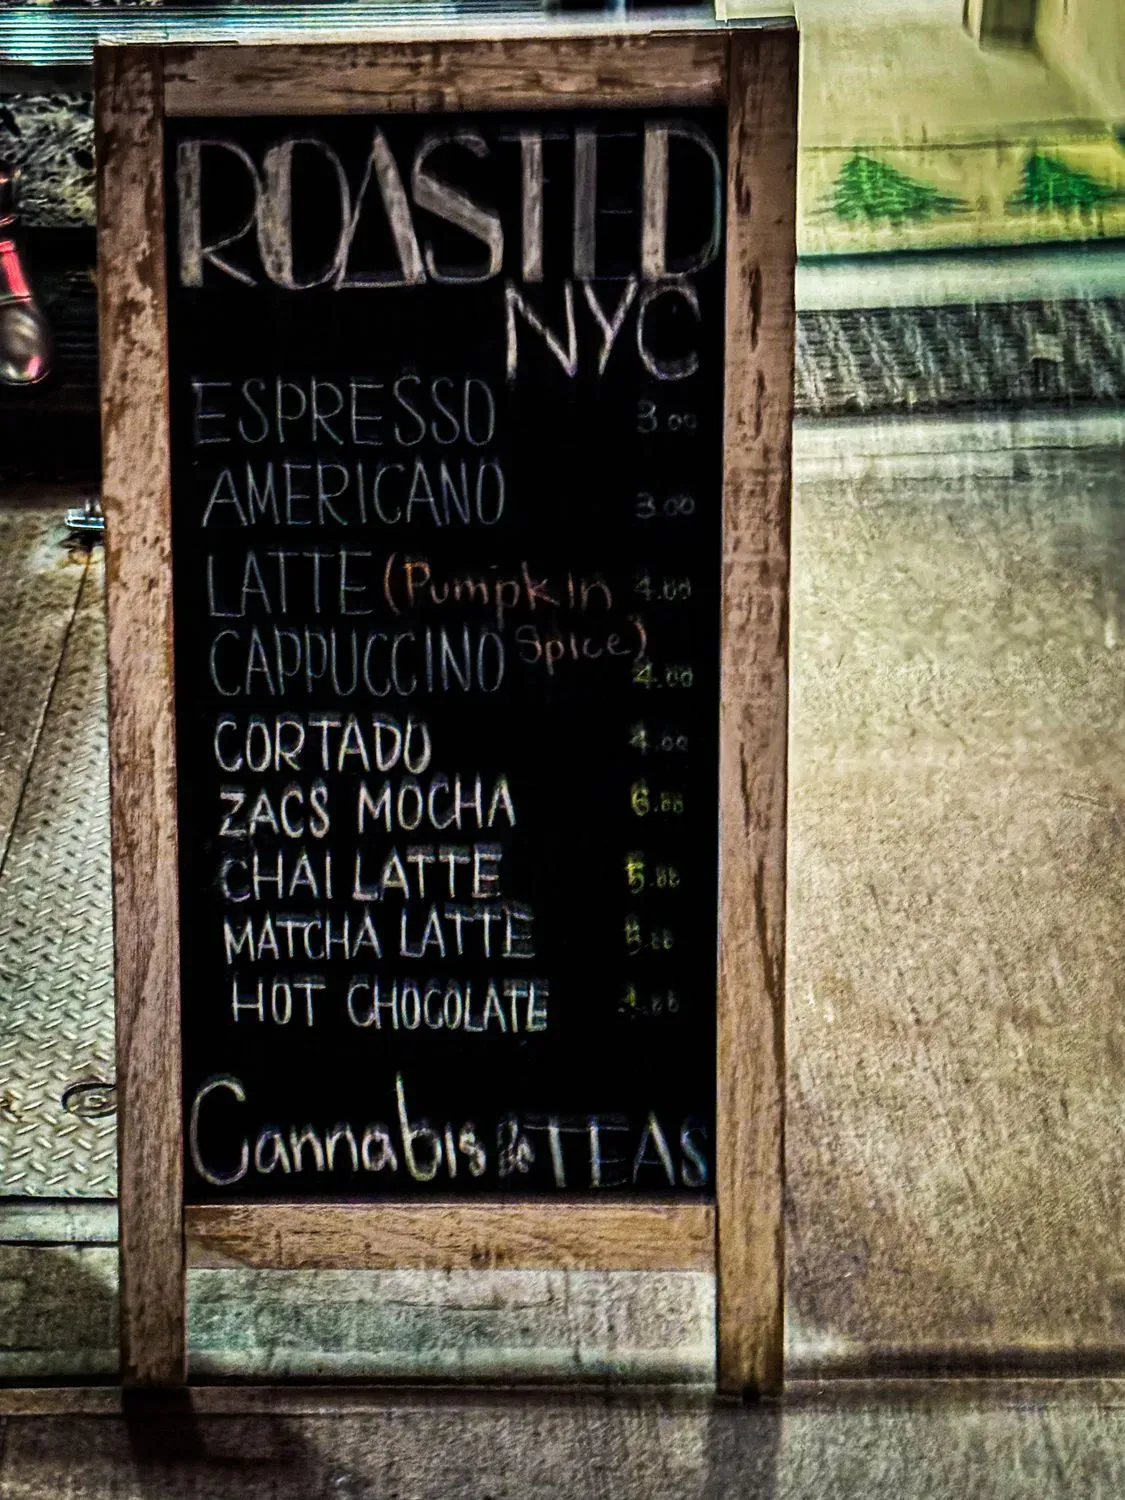 ROASTED
NYC
ESPRESSO 3.00
AMERICANO 3.00
LATTE (Pumpkin Spice) 4.00
CAPPUCCINO 4.00
CORTADO 4.00
ZACS MOCHA 6.00
CHAI LATTE 5.00
MATCHA LATTE 5.00
HOT CHOCOLATE
Cannabis TEAS